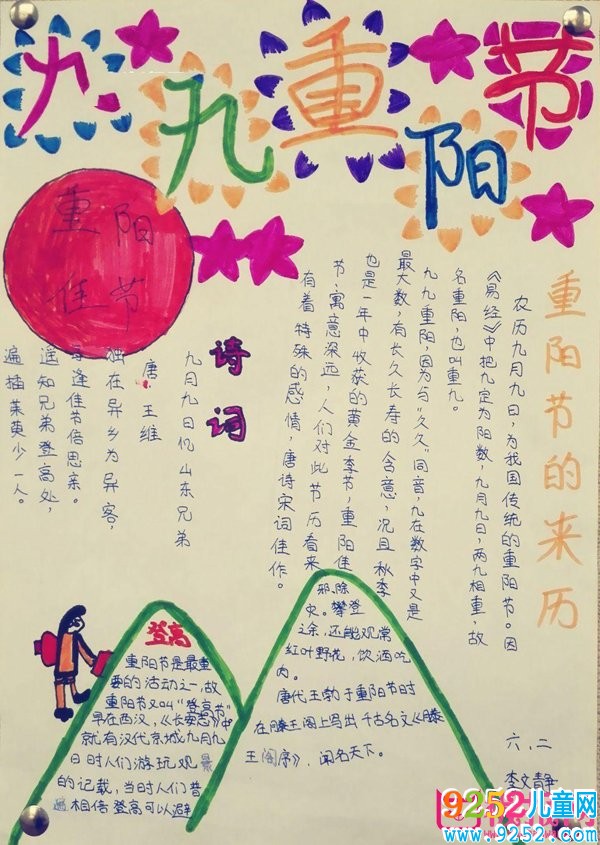 九九重阳节
重阳
佳节
重阳节的来历
农历九月九日，为我国传统的重阳节。因
《易经》中把九定为阳数，九月九日，两九相重，故
名重阳，也叫重九。
九九重阳，因为与“久久”同音，九在数字中又是
最大数，有长久长寿的含意，况且秋季
也是一年中收获的黄金季节，重阳佳
节，寓意深远，人们对此节历看来
有着特殊的感情，唐诗宋词佳作。
诗词
九月九日忆山东兄弟
唐 王维
独在异乡为异客，
每逢佳节倍思亲。
遥知兄弟登高处，
遍插茱萸少一人。
登高
重阳节是最重
要的活动之一，故
重阳节又叫“登高节”
早在西汉，《长安志》中
就有汉代京城九月九
日时人们游玩观景
的记载，当时人们普
遍相信登高可以避
邪、除
灾。攀登
之余，还能观常
红叶野花，饮酒吃
肉。
唐代王勃于重阳节时
在滕王阁上写出千古名文《滕
王阁序》，闻名天下。
六、二
李文静
9252儿童网
www.9252.com